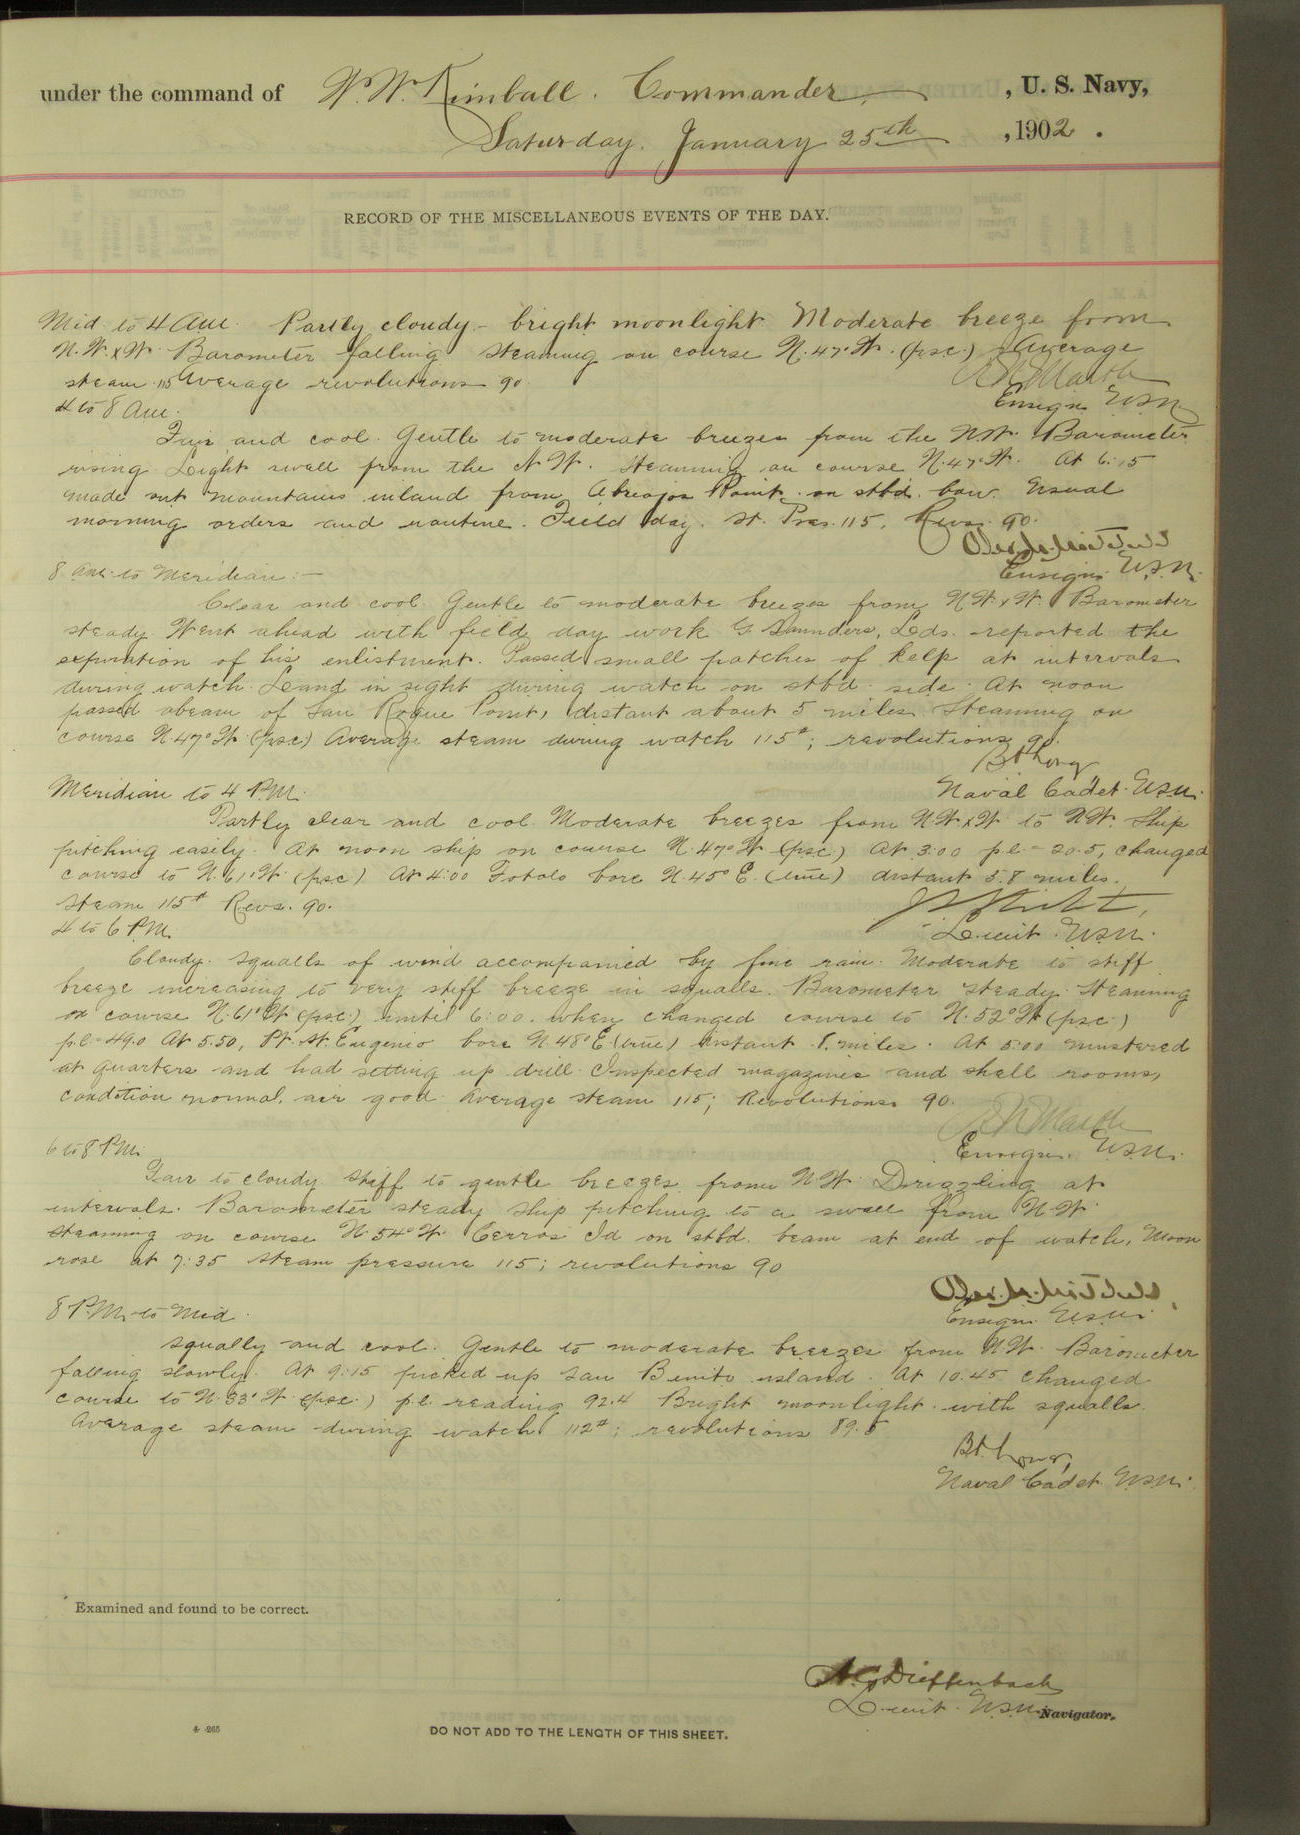 under the command of W. W. Kimball. Commander, U. S. Navy,
Saturday, January 25th, 1902.
RECORD OF THE MISCELLANEOUS EVENTS OF THE DAY.
Mid to 4 Am. Partly cloudy - bright moonlight. Moderate breeze from
N.W.xW. Barometer falling. Steaming on course N.47°W. (psc.) Average
steam 115 Average revolutions 90.
Ensign USN
4 to 8 Am.
Fair and cool. Gentle to moderate breezes from the NW. Barometer
rising. Light swell from the NW. Steaming on course N.47°W. At 6:15
made out mountains inland from Abreojos Point on stbd. bow. Usual
morning orders and routine. Field day. St. Pres. 115. Revs. 90.
Ensign U.S.N.
8 am. to Meridian:-
Clear and cool. Gentle to moderate breezes from NW.xW. Barometer
steady. Went ahead with field day work. G. Saunders, Lds. reported the
expiration of his enlistment. Passed small patches of kelp at intervals
during watch. Land in sight during watch on stbd. side. At noon
passed abeam of San Roque Point, distant about 5 miles. Steaming on
course N47°W. (psc.) Average steam during watch 115#; revolutions 90.
Naval Cadet. U.S.N.
Meridian to 4 P.M.
Partly clear and cool. Moderate breezes from NW.xW. to NW. Ship
pitching easily. At noon ship on course N.47°W. (psc.) At 3:00 p.l. = 20.5, changed
course to N.61°W. (psc.) At 4:00 bore N.45°E. (true) distant 5.8 miles.
Steam 115# Revs. 90.
Lieut. U.S.N.
4 to 6 P.M.
Cloudy. Squalls of wind accompanied by fine rain. Moderate to stiff
breeze increasing to very stiff breeze in squalls. Barometer steady. Steaming
on course N.61°W. (psc.) until 6:00. when changed course to N.52°W. (psc.)
p.l = 49.0 At 5.50, Pt. St. Eugenio bore N.48°E. (true) distant miles. At 5:00 mustered
at quarters and had setting up drill. Inspected magazines and shell rooms,
condition normal, air good. Average steam 115; Revolutions 90.
Ensign. U.S.N.
6 to 8 P.M.
Fair to cloudy. Stiff to gentle breezes from NW. Drizzling at
intervals. Barometer steady. Ship pitching to a swell from NW.
Steaming on course N.54°W. Cerros Id on stbd. beam at end of watch. Moon
rose at 7:35 Steam pressure 115; revolutions 90
Ensign U.S.N.
8 P.M. to Mid.
Squally and cool. Gentle to moderate breezes from NW. Barometer
falling slowly. At 9:15 picked up San Benito island. At 10.45 changed
course to N.33°W. (psc.) p.l. reading 92.4 Bright moonlight with squalls.
Average steam during watch 112#; revolutions 89.5
Naval Cadet. U.S.N.
Examined and found to be correct.
A.C. Dieffenbach
Lieut. U.S.N. Navigator.
DO NOT ADD TO THE LENGTH OF THIS SHEET.